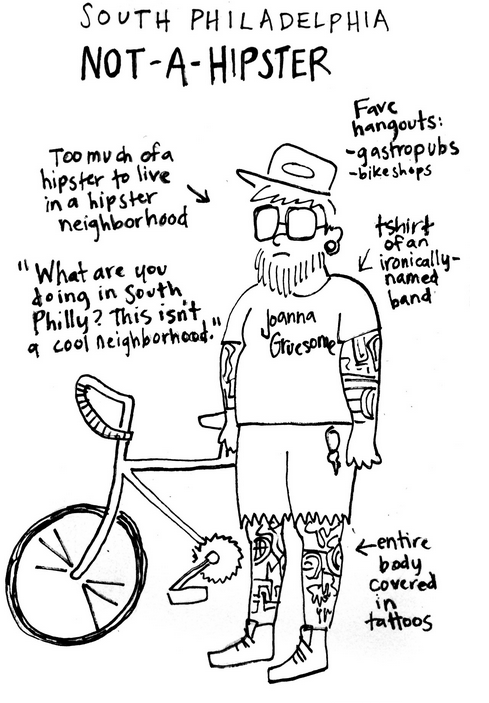 SOUTH PHILADELPHIA
NOT-A-HIPSTER
Fave
hangouts:
-gastropubs
-bike shops
Too much of a
hipster to live
in a hipster
neighborhood
tshirt
of an
ironically-
named
band
"What are you
doing in South
Philly? This isn't
a cool neighborhood."
Joanna
Gruesome
entire
body
covered
in
tattoos